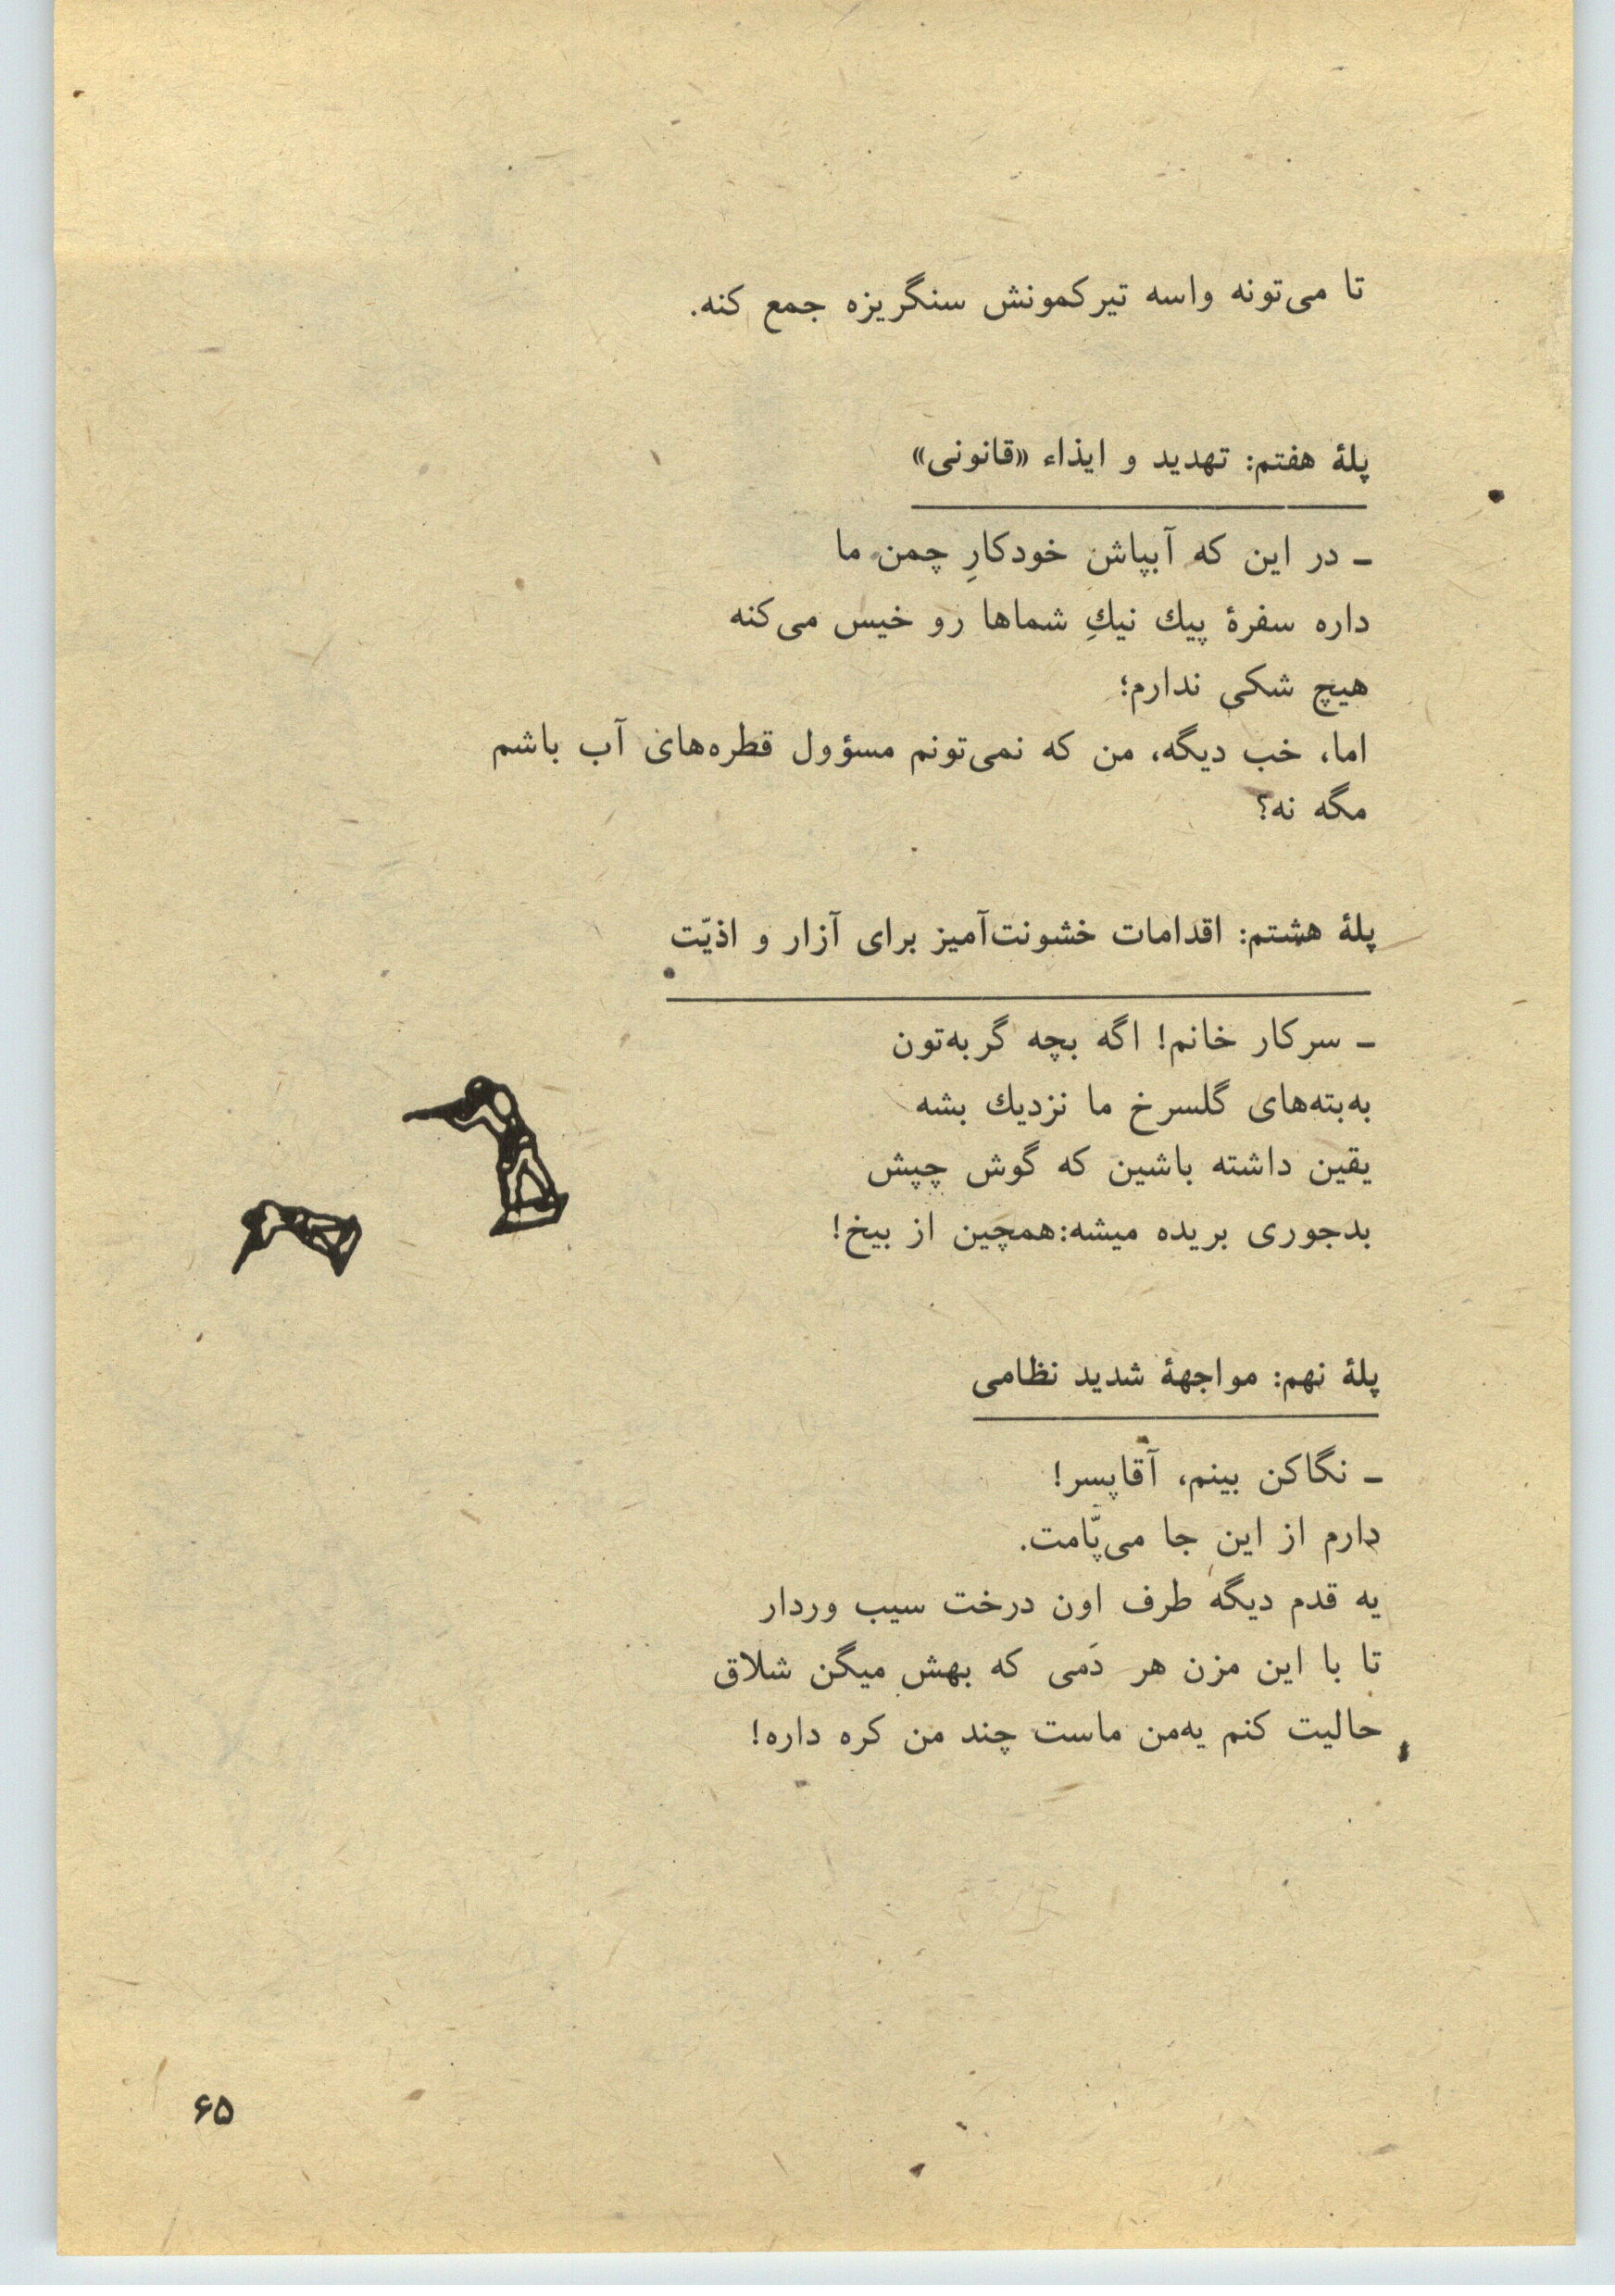 تا می‌تونه واسه تیرکمونش سنگریزه جمع کنه.
پلهٔ هفتم: تهدید و ایذاء «قانونی»
ـ در این که آبپاش خودکارِ چمن ما
داره سفرهٔ پیك نیكِ شماها رو خیس می‌کنه
هیچ شکی ندارم؛
اما، خب دیگه، من که نمی‌تونم مسؤول قطره‌های آب باشم
مگه نه؟
پلهٔ هشتم: اقدامات خشونت‌آمیز برای آزار و اذیّت
ـ سرکار خانم! اگه بچه گربه‌تون
به‌بته‌های گلسرخ ما نزدیك بشه
یقین داشته باشین که گوش چپش
بدجوری بریده میشه: همچین از بیخ!
پلهٔ نهم: مواجههٔ شدید نظامی
ـ نگاکن بینم، آقاپسر!
دارم از این جا می‌پّامت.
یه قدم دیگه طرف اون درخت سیب وردار
تا با این مزن هر دَمی که بهش میگن شلاق
حالیت کنم یه‌من ماست چند من کره داره!
۶۵